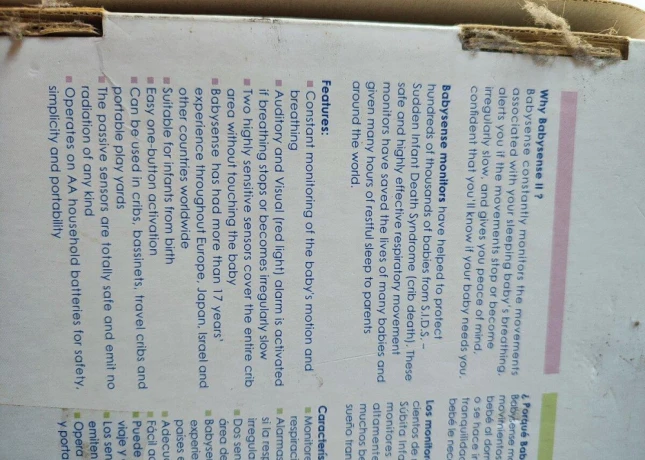 Why Babysense II ?
Babysense constantly monitors the movements
associated with your sleeping baby's breathing,
alerts you if the movements stop or become
irregularly slow, and gives you peace of mind,
confident that you'll know if your baby needs you.
Babysense monitors have helped to protect
hundreds of thousands of babies from S.I.D.S. –
Sudden Infant Death Syndrome (crib death). These
safe and highly effective respiratory movement
monitors have saved the lives of many babies and
given many hours of restful sleep to parents
around the world.
Features:
Constant monitoring of the baby's motion and
breathing
Auditory and Visual (red light) alarm is activated
if breathing stops or becomes irregularly slow
Two highly sensitive sensors cover the entire crib
area without touching the baby
Babysense has had more than 17 years'
experience throughout Europe, Japan, Israel and
other countries worldwide
Suitable for infants from birth
Easy one-button activation
Can be used in cribs, bassinets, travel cribs and
portable play yards
The passive sensors are totally safe and emit no
radiation of any kind
Operates on AA household batteries for safety,
simplicity and portability
¿ Porqué Bab
Babysense m
movimientos
bebé al dorm
o se hace ir
tranquilidad
bebé le nec
Los monitor
cientos de
Súbita Infa
monitores
altamente
muchos be
sueño tran
Caracterís
Monitore
respirac
Alarma
si la res
irregula
Dos sen
área de
Babyse
experie
países e
Adecu
Fácil ac
Puede
viaje y
Los sen
emiten
Opera
y porta